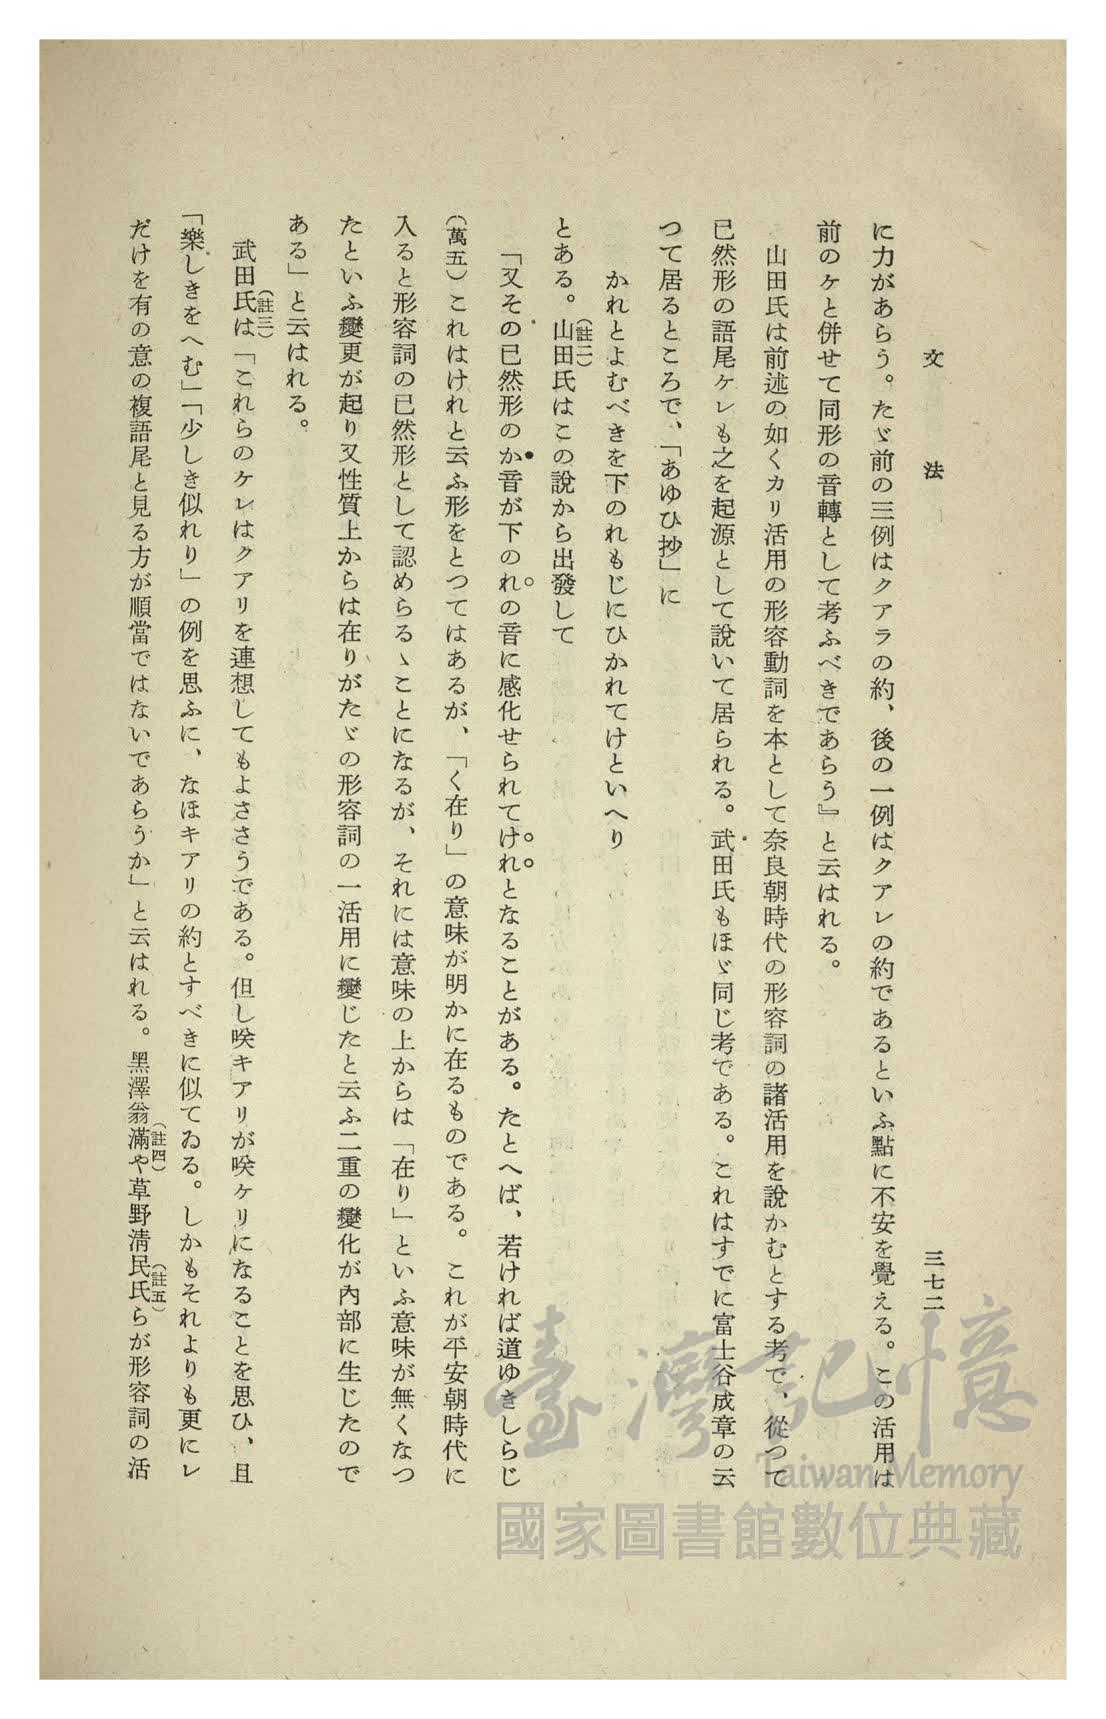 文法
三七二
に力があらう。たゞ前の三例はクアラの約、後の一例はクアレの約であるといふ點に不安を覺える。この活用は
前のケと併せて同形の音轉として考ふべきであらう』と云はれる。
山田氏は前述の如くカリ活用の形容動詞を本として奈良朝時代の形容詞の諸活用を說かむとする考で、從つて
已然形の語尾ケレも之を起源として說いて居られる。武田氏もほゞ同じ考である。これはすでに富士谷成章の云
つて居るところで、「あゆひ抄」に
かれとよむべきを下のれもじにひかれてけといへり
とある。山田氏(註二)はこの說から出發して
「又その已然形のか音が下のれの音に感化せられてけれとなることがある。たとへば、若ければ道ゆきしらじ
(萬五)これはけれと云ふ形をとつてはあるが、「く在り」の意味が明かに在るものである。これが平安朝時代に
入ると形容詞の已然形として認めらるゝことになるが、それには意味の上からは「在り」といふ意味が無くなつ
たといふ變更が起り又性質上からは在りがたゞの形容詞の一活用に變じたと云ふ二重の變化が內部に生じたので
ある」と云はれる。
武田氏(註三)は「これらのケレはクアリを連想してもよささうである。但し咲キアリが咲ケリになることを思ひ、且
「樂しきをへむ」「少しき似れり」の例を思ふに、なほキアリの約とすべきに似てゐる。しかもそれよりも更にレ
だけを有の意の複語尾と見る方が順當ではないであらうか」と云はれる。黑澤翁滿(註四)や草野淸民氏(註五)らが形容詞の活
臺灣記憶
Taiwan Memory
國家圖書館數位典藏